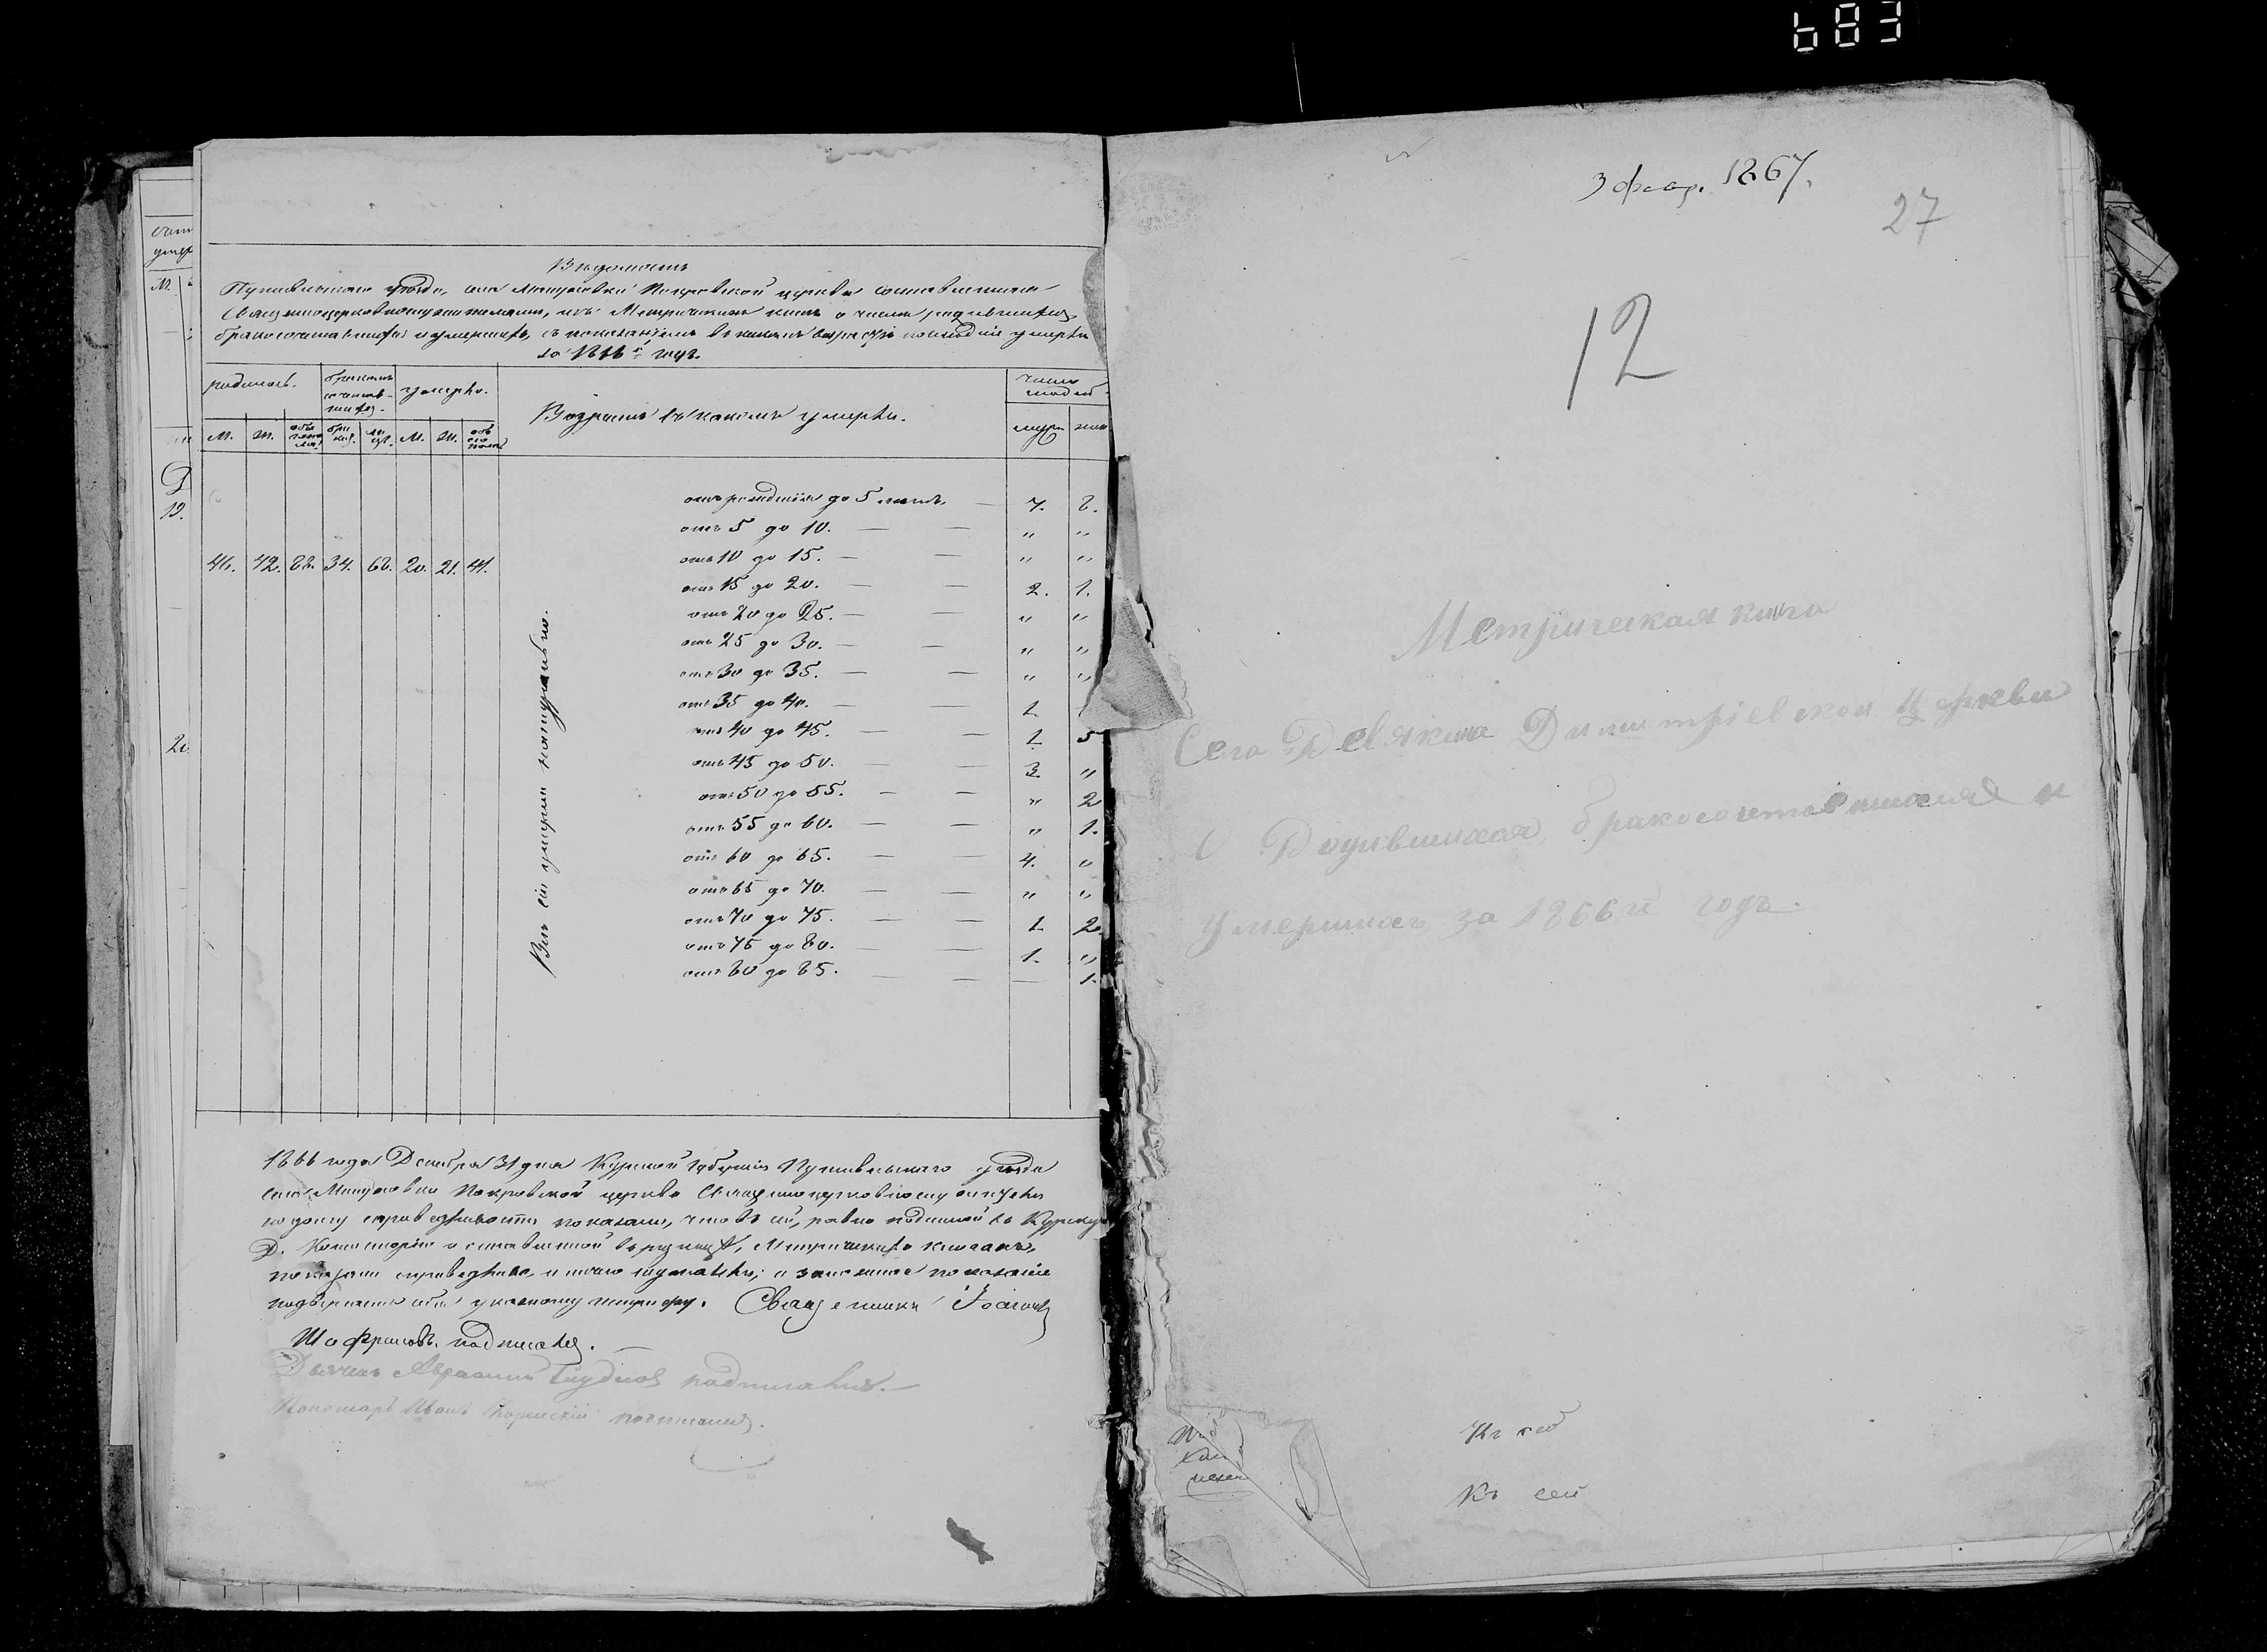 Вѣдомость
Путивльскаго уѣзда, села Мануховки Покровской церкви составленная
Священноцерковнослужителями, изъ Метрическихъ книгъ о числѣ родившихся,
бракосочетавшихся и умершихъ, съ показаніемъ въ какихъ возрастѣ послѣдніе умерли
за 1866й годъ.
родилось. бракомъ сочетав-шихся. умерло. Возрастъ въ какомъ умерли. число людей
м. ж. обоего пола бра ков. ли цъ. м. ж. обо его пола муж жен
отъ рожденія до 5 лѣтъ. — 7. 8.
отъ 5 до 10. — — " "
отъ 10 до 15. — — " "
46. 42. 88. 34. 68. 20. 21. 41.
отъ 15 до 20. — — 2. 1.
отъ 20 до 25. — — " "
отъ 25 до 30. — — " "
отъ 30 до 35. — — " "
отъ 35 до 40. — — 1.
отъ 40 до 45. — — 1. 5
отъ 45 до 50. — — 3. "
отъ 50 до 55. — — " 2
отъ 55 до 60. — — " 1.
отъ 60 до 65. — — 4. "
отъ 65 до 70. — — " "
отъ 70 до 75. — — 1. 2.
отъ 75 до 80. — — 1. "
отъ 80 до 85. — — — 1.
Всѣ сіи умерли натурально.
1866 года Декабря 31 дня Курской Губерніи Путивльскаго уѣзда
села Мануховки Покровской церкви Священноцерковнослужители
по долгу справедливости показали, что въ сей, равно поданной въ Курскую
Д. Консисторію и оставленной въ ризницѣ, Метрическихъ книгахъ,
показали справедливо, и ничего не утаили; а за ложное показаніе
подвергаемъ себя указному штрафу. Священникъ Іоаннъ
Шафрановъ подписался.
Дьячекъ Авраамій подписался. —
Пономарь Иванъ подписался.
3 февр. 1867.
27
12
Метрическая книга
Села Девякина Димитріевской Церкви
О Родившихся бракосочетавшихся и
Умершихъ за 1866й годъ.
Къ сей
Къ сей
683